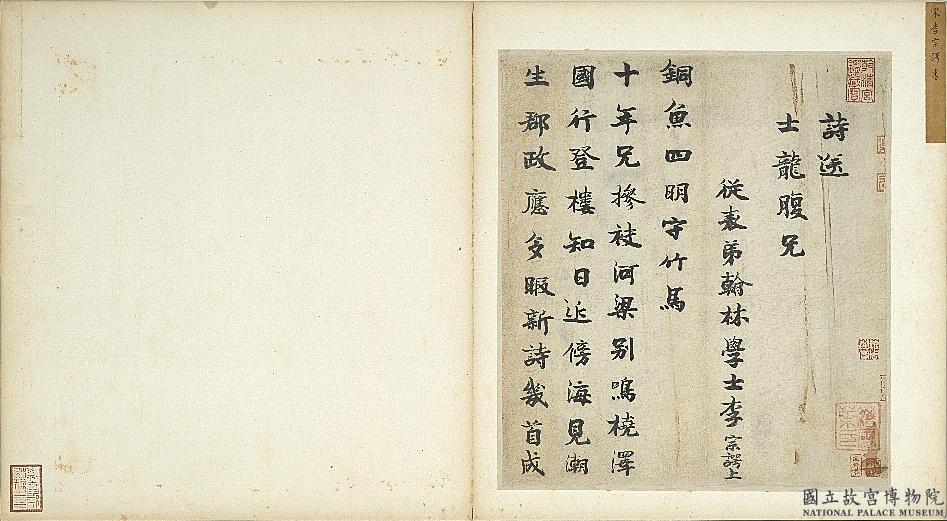 宋李宗諤書
詩送
士龍腹兄
從表弟翰林學士李宗諤上
銅魚四明守竹馬
十年兄摻袂河梁别鳴橈澤
國行登樓知日近傍海見潮
生郡政應多暇新詩幾首成
國立故宮博物院
NATIONAL PALACE MUSEUM